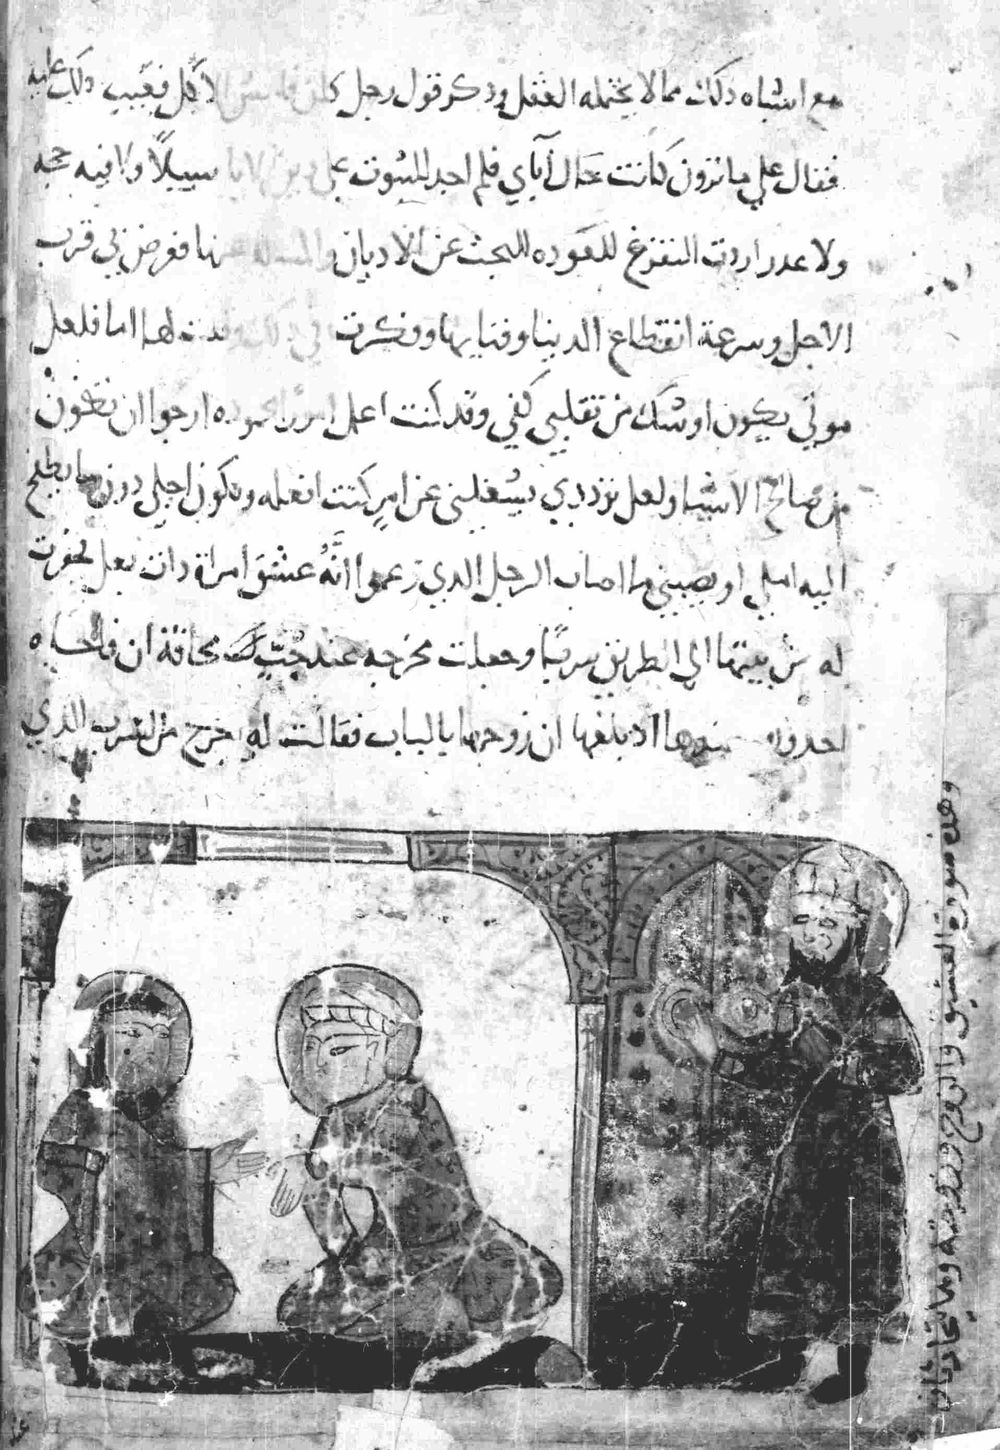 مع اشباه ذلك مما لا يحتمله العقل وذكر قول رجل كان فاحش الاكل فعيب ذلك عليه
فقال علي ما ترون كانت تحال اباي فلم اجد للثبوت علي دين الابا سبيلاً ولا فيه حجه
ولا عدر اردت التفرغ للعوده للبحث عن الاديان والمسله عنها فعرض لي قرب
الاجل وسرعة انقطاع الدنيا وفنايها وفكرت في ذلك وقلت لها اما فلعل
موتي يكون اوشك من تقليبي كفي وقد كنت اعمل امورًا محموده ارجوا ان تكون
من صالح الاشيا ولعل ترددي يشغلني عن امرٍ كنت افعله ويكون اجلي دون ما يطمح
اليه املي او يصيبني ما اصاب الرجل الدي زعموا انَّهُ عشق امراة دات بعل فحفرت
له من بيتها الى الطريق سربًا وجعلت مخرجه عند جُبّ مخافة ان فاجاه
احد اد بلغها ان زوجها بالباب فقالت له اخرج من السرب الدي
وهذه صورة العشيق والزوج وزوجته وهما يتحادثان